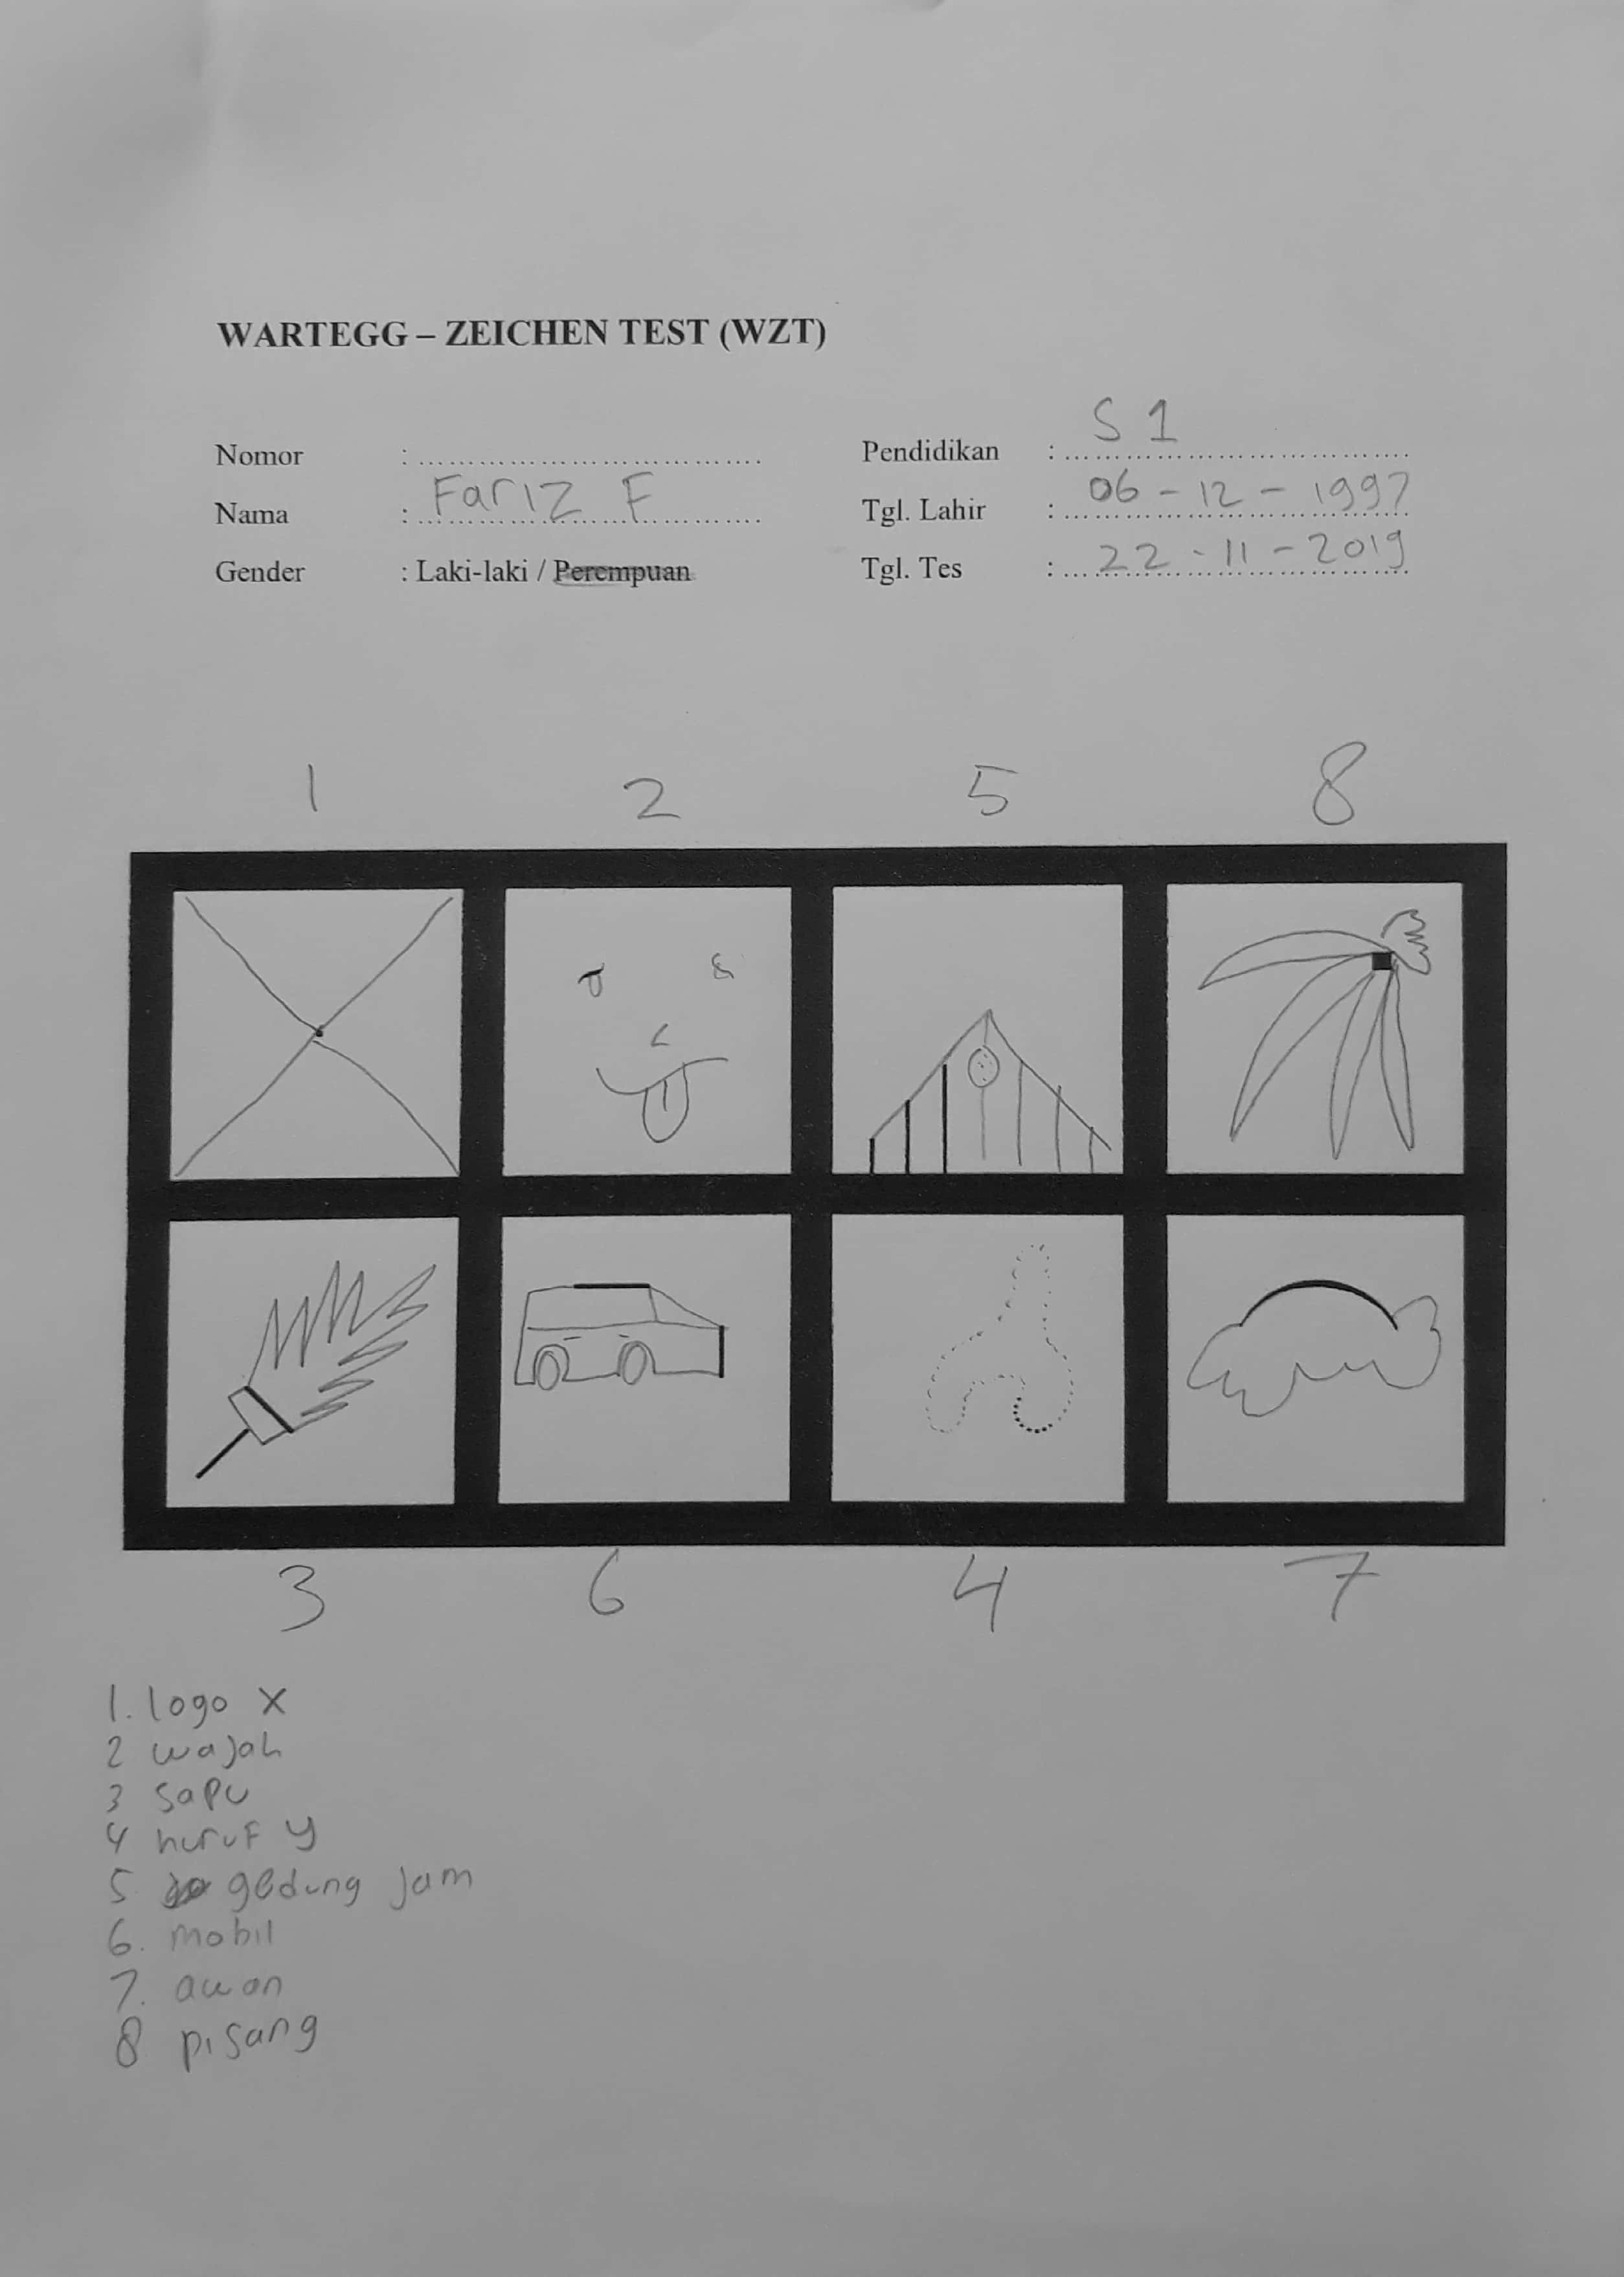 WARTEGG – ZEICHEN TEST (WZT)
Nomor : ....................................
Nama : Fariz F
Gender : Laki-laki / Perempuan
Pendidikan : S 1
Tgl. Lahir : 06 - 12 - 1997
Tgl. Tes : 22 - 11 - 2019
1 2 5 8
3 6 4 7
1. logo X
2 wajah
3 sapu
4 huruf y
5 gedung jam
6. mobil
7. awan
8 pisang